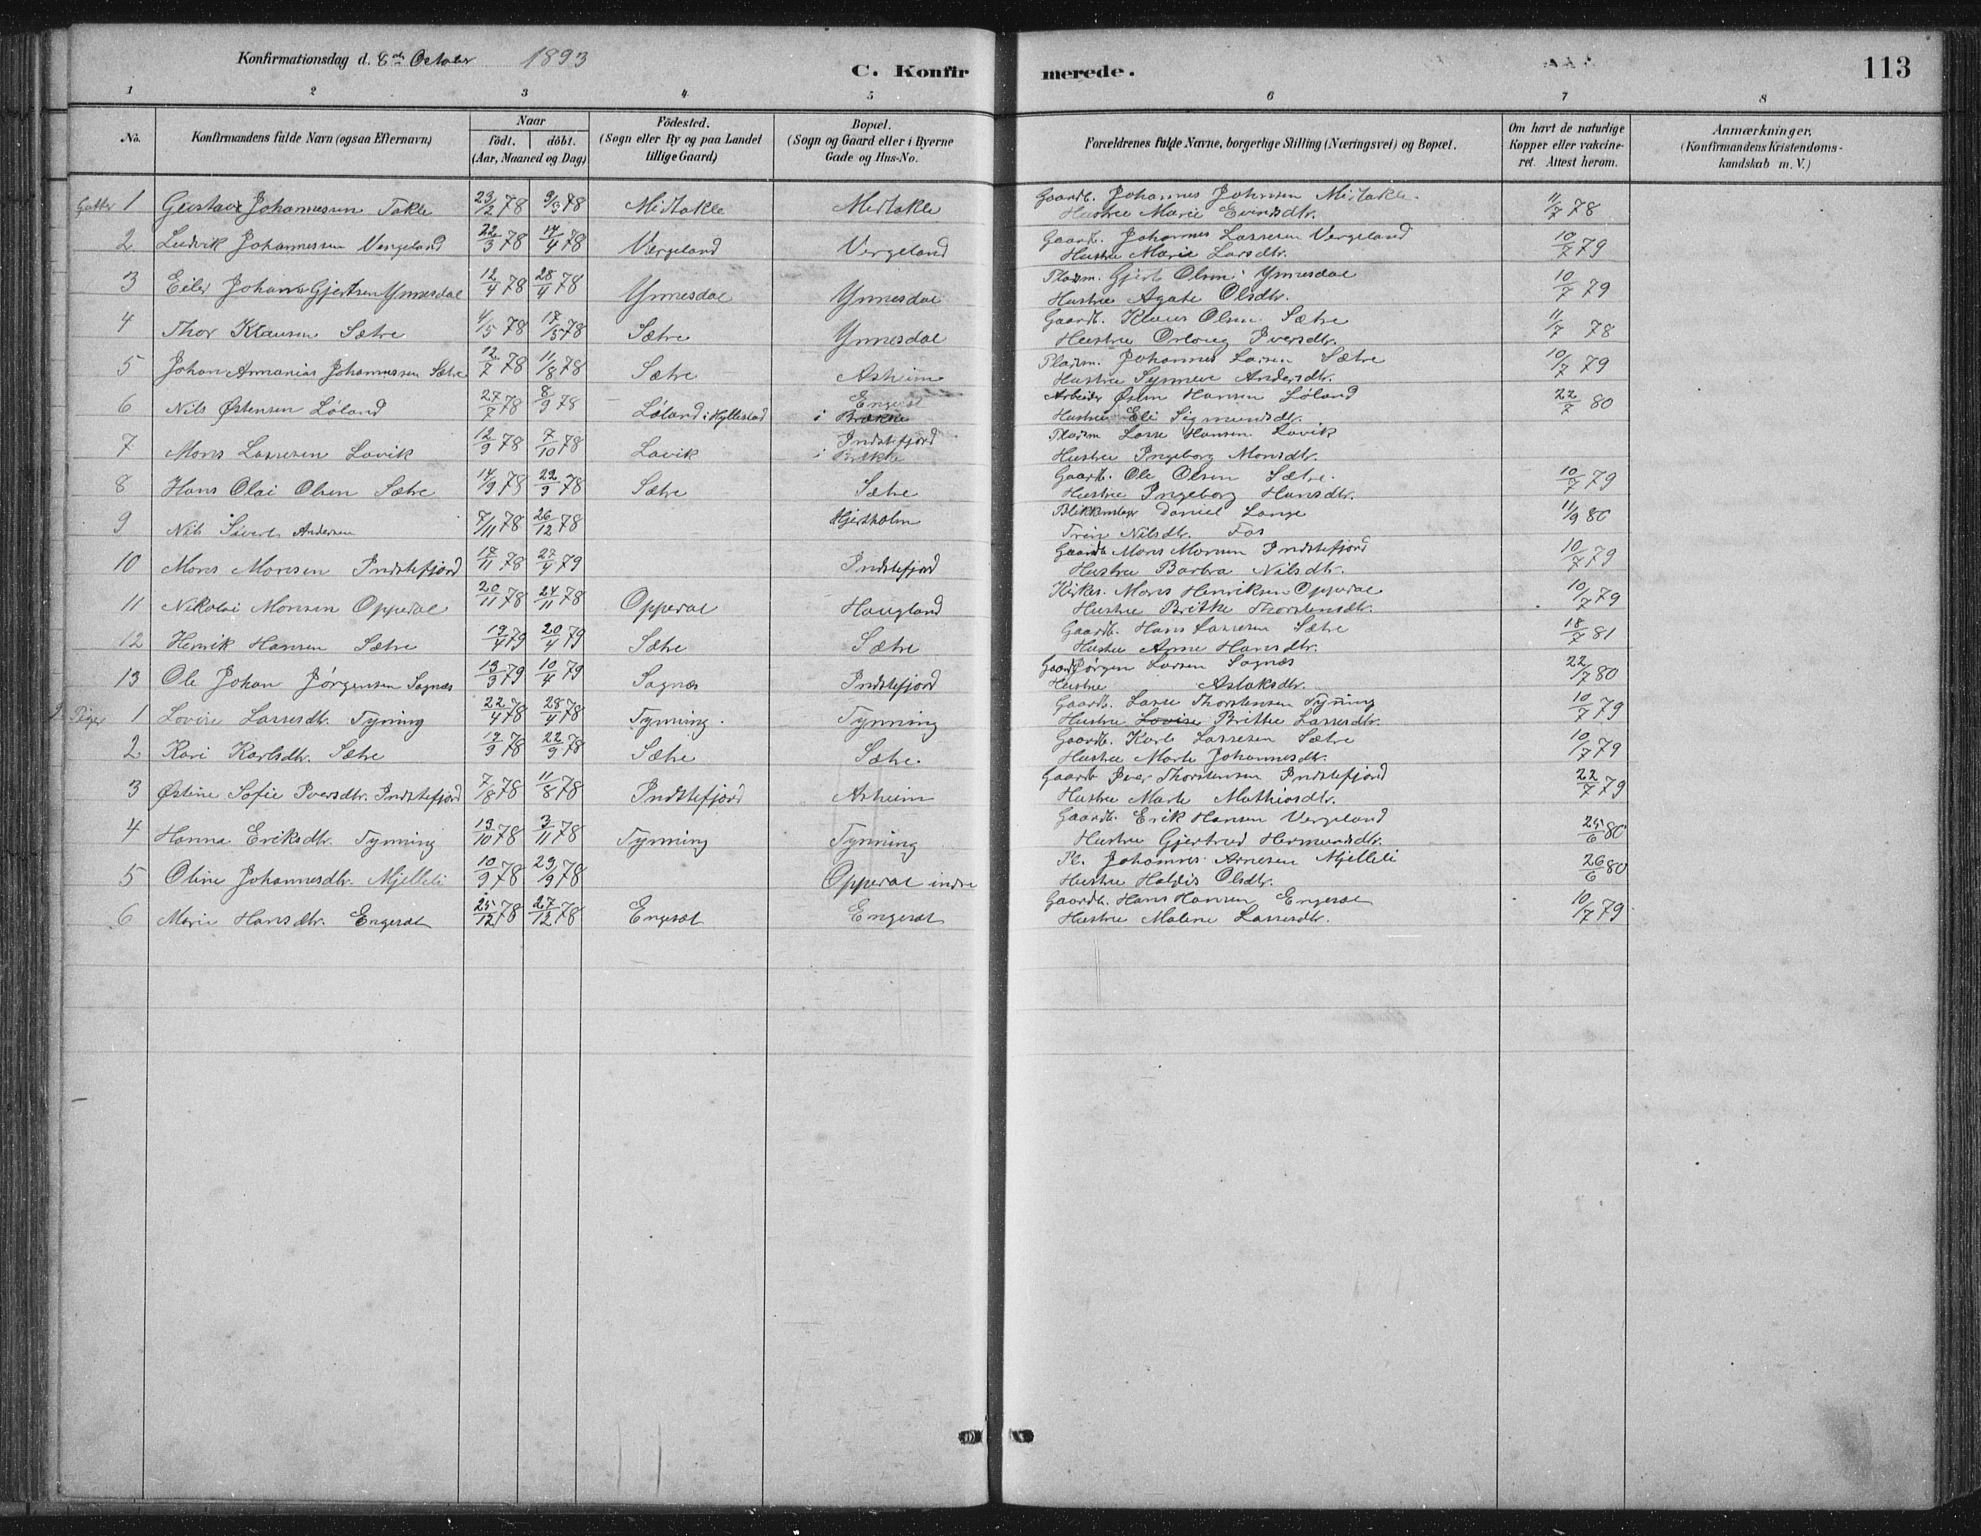 Konfirmationsdag d. 8de October 1893
C. Konfirmerede.
113
1 2 3 4 5 6 7 8
No.
Konfirmandens fulde Navn (ogsaa Efternavn)
Naar
födt. döbt.
(Aar, Maaned og Dag)
Födested.
(Sogn eller By og paa Landet
tillige Gaard)
Bopæl.
(Sogn og Gaard eller i Byerne
Gade og Hus-No.
Forældrenes fulde Navne, borgerlige Stilling (Næringsvei) og Bopæl.
Om havt de naturlige
Kopper eller vakcine-
ret. Attest herom.
Anmærkninger,
(Konfirmandens Kristendoms-
kundskab m. V.)
Gutter 1 Gustav Johannessen Takle 23/2 78 9/3 78 Midtakle Midtakle Gaardb. Johannes Johnsen Midtakle. 11/7 78
Hustru Marie Evindsdtr.
2 Ludvik Johannessen Vergeland 22/3 78 14/4 78 Vergeland Vergeland Gaardb. Johannes Lassesen Vergeland 10/7 79
Hustru Marie Larsdtr.
3 Eiler Johan Gjertsen Ynnesdal 12/4 78 28/4 78 Ynnesdal Ynnesdal Pladsm. Gjert Olsen Ynnesdal 10/7 79
Hustru Agate Olsdtr.
4 Thor Klausen Sætre 4/5 78 17/5 78 Sætre Ynnesdal Gaardb. Klaus Olsen Sætre 11/7 78
Hustru Orloug Iversdtr.
5 Johan Annanias Johannessen Sætre 12/7 78 11/8 78 Sætre Asheim Pladsm. Johannes Larsen Sætre 10/7 79
Hustru Synneve Andersdtr.
6 Nils Østensen Løland 27/7 78 8/9 78 Løland i Hyllestad Engesæt Arbeider Østen Hansen Løland 22/7 80
i Brække Hustru Eli Sigmundsdtr.
7 Mons Lassesen Lavik 12/9 78 7/10 78 Lavik Indstefjord Pladsm Lasse Hansen Lavik
i Brekke Hustru Ingeborg Monsdtr.
8 Hans Olai Olsen Sætre 14/9 78 22/9 78 Sætre Sætre Gaardb. Ole Olsen Sætre. 10/7 79
Hustru Ingeborg Hansdtr.
9 Nils Sivert Andersen 7/11 78 26/12 78 Hjertholm Blikkenslager Daniel Lange 11/9 80
Trine Nilsdtr. Fos
10 Mons Monsen Indstefjord 17/11 78 27/4 79 Indstefjord Gaardb. Mons Monsen Indstefjord 10/7 79
Hustru Barbra Nilsdtr.
11 Nikolai Monsen Opperdal 20/11 78 24/11 78 Opperdal Haugland Kirkes. Mons Henriksen Opperdal 10/7 79
Hustru Brithe Thorstensdtr.
12 Henrik Hansen Sætre 19/4 79 20/4 79 Sætre Sætre Gaardb. Hans Lassesen Sætre 18/7 81
Hustru Anne Hansdtr.
13 Ole Johan Jørgensen Sognæs 13/3 79 10/4 79 Sognæs Indstefjord Gaardb Jørgen Larsen Sognæs 22/7 80
Hustru Aslaksdtr.
Piger 1 Lovise Lassesdtr. Tynning 22/4 78 28/4 78 Tynning. Tynning Gaardb. Lasse Thorstensen Tynning 10/7 79
Hustru Lovise Brithe Lassesdtr.
2 Kari Karlsdtr. Sætre 17/9 78 22/9 78 Sætre Sætre. Gaardb. Karl Lassesen Sætre 10/7 79
Hustru Marte Johannesdtr.
3 Østine Sofie Iversdtr. Indstefjord 7/8 78 11/8 78 Indstefjord Asheim Gaardb Iver Thorstensen Indstefjord 22/7 79
Hustru Marte Mathiasdtr.
4 Hanna Eriksdtr. Tynning 13/10 78 3/11 78 Tynning Tynning Gaardb. Erik Hansen Vergeland 25/6 80
Hustru Gjertrud Hermundsdtr.
5 Oline Johannesdtr. Mjelleli 10/9 78 29/9 78 Opperdal indre Pl. Johannes Arnesen Mjelleli 26/6 80
Hustru Haldis Olsdtr.
6 Marie Hansdtr. Engesæt 25/12 78 27/12 78 Engesæt Engesæt Gaardb. Hans Hansen Engesæt 10/7 79
Hustru Malene Lassesdtr.